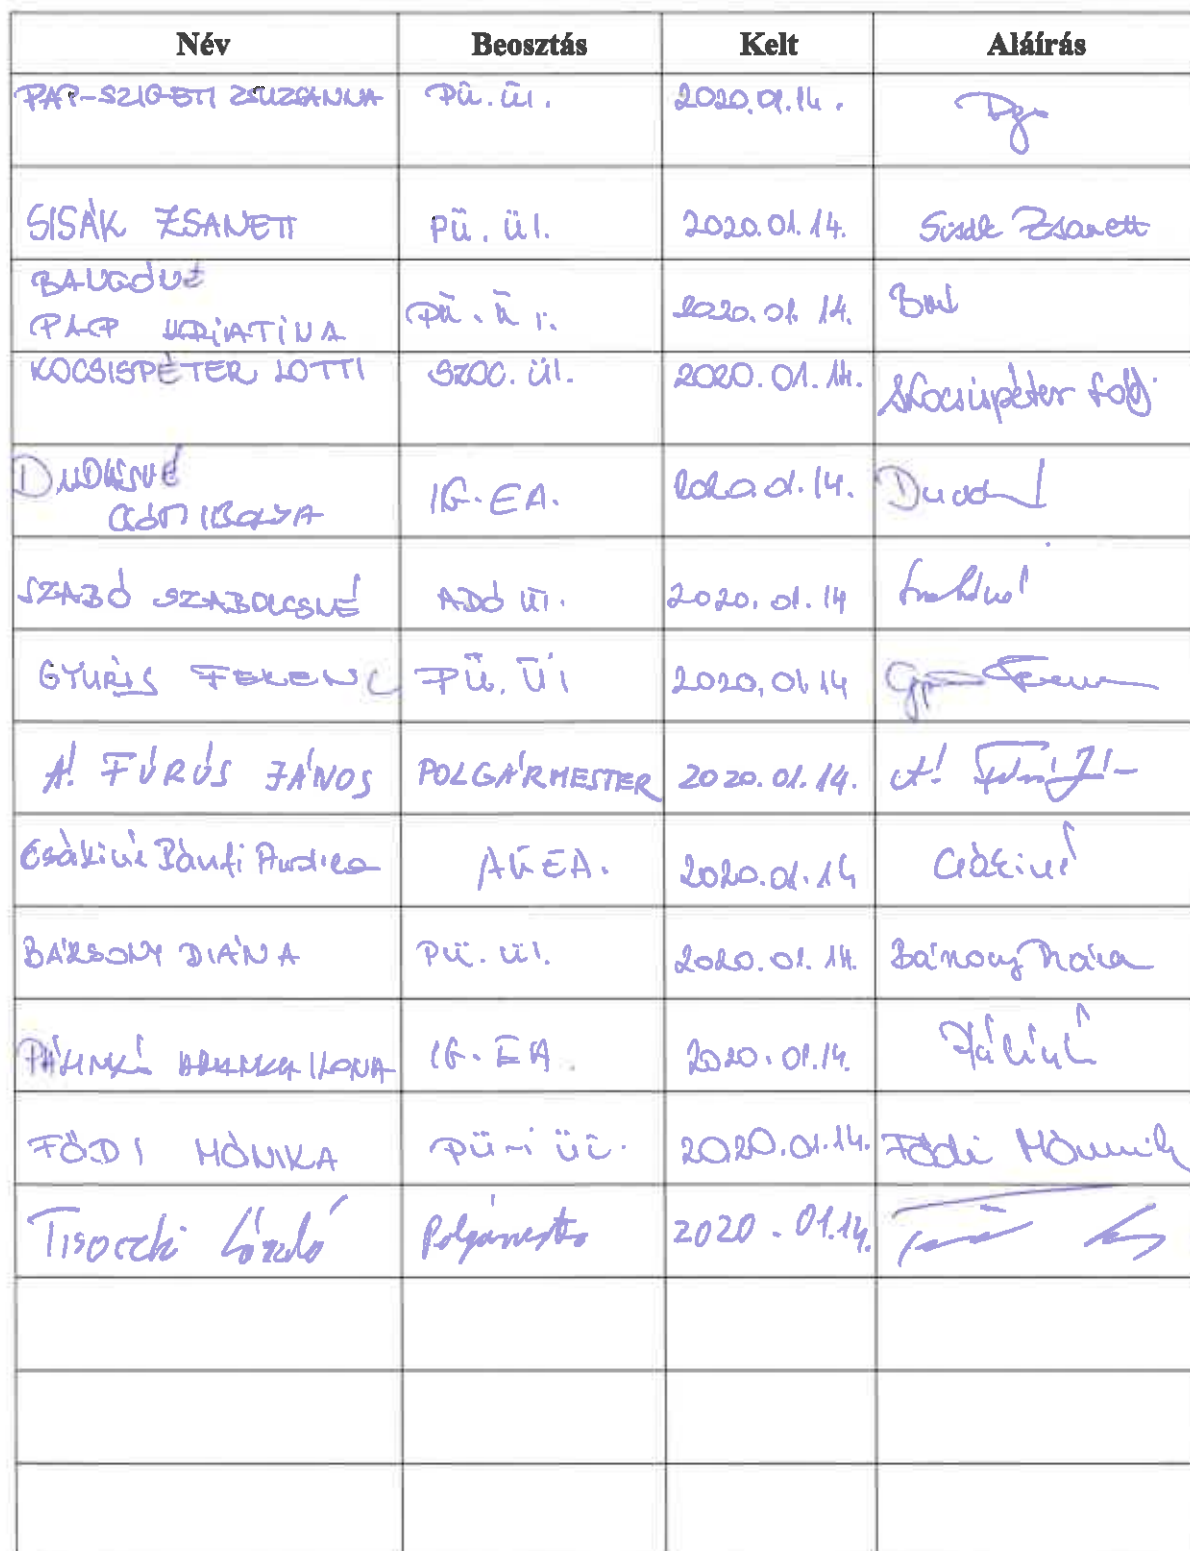 Név Beosztás Kelt Aláírás
PAP-SZIGETI ZSUZSANNA Pü. üi. 2020.01.14.
SISÁK ZSANETT Pü. üi. 2020.01.14. Sisák Zsanett
PAP KRISTINA Pü. üi. 2020.01.14.
KOCSISPÉTER LOTTI SZOC. üi. 2020.01.14. Kocsispéter Lotti
IBOLYA IG. EA. 2020.01.14.
SZABÓ SZABOLCSNÉ ADÓ üi. 2020.01.14
GYURIS FERENC PÜ. ÜI 2020.01.14 Ferenc
A! FÚRÚS JÁNOS POLGÁRMESTER 2020.01.14. A!
Csákiné Bánfi Andrea EA. 2020.01.14 Csákiné
BÁRSONY DIÁNA Pü. üi. 2020.01.14. Bársony Diána
ILONA IG. EA. 2020.01.14.
FÖDI MÓNIKA pü-i üi. 2020.01.14. Födi Mónika
László Polgármester 2020.01.14.